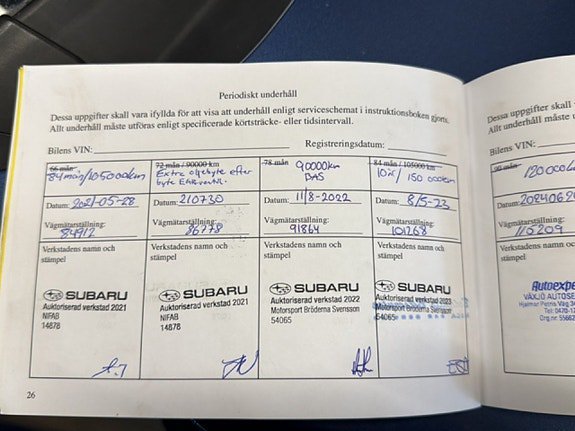 Periodiskt underhåll
Dessa uppgifter skall vara ifyllda för att visa att underhåll enligt serviceschemat i instruktionsboken gjorts.
Allt underhåll måste utföras enligt specificerade körtsträcke- eller tidsintervall.
Bilens VIN:
Registreringsdatum:
66 mån
84mån/105000km
Datum: 2021-05-28
Vägmätarställning:
84912
Verkstadens namn och
stämpel
SUBARU
Auktoriserad verkstad 2021
NIFAB
14878
72 mån / 90000 km
Extra oljebyte efter
byte
Datum: 210730
Vägmätarställning:
86778
Verkstadens namn och
stämpel
SUBARU
Auktoriserad verkstad 2021
NIFAB
14878
78 mån
90000km
BAS
Datum: 11/8-2022
Vägmätarställning:
91864
Verkstadens namn och
stämpel
SUBARU
Auktoriserad verkstad 2022
Motorsport Bröderna Svensson
54065
84 mån / 105000 km
150 000km
Datum: 8/5-23
Vägmätarställning:
101268
Verkstadens namn och
stämpel
SUBARU
Auktoriserad verkstad 2023
Motorsport Bröderna Svensson
54065
26
Periodiskt
Dessa uppgifter skall vara
Allt underhåll måste u
Bilens VIN:
90 mån
120000
Datum:
Vägmätarställning:
110209
Verkstadens namn
stämpel
Autoexpe
VÄXJÖ AUTOSE
Hjalmar Petris Väg 3
Tel: 0470-1
Org.nr: 55682